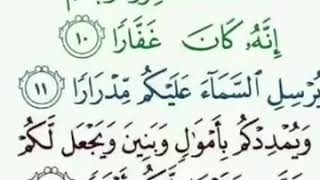 إِنَّهُۥ كَانَ غَفَّارًا ١٠
يُرْسِلِ ٱلسَّمَآءَ عَلَيْكُم مِّدْرَارًا ١١
وَيُمْدِدْكُم بِأَمْوَٰلٍ وَبَنِينَ وَيَجْعَل لَّكُمْ